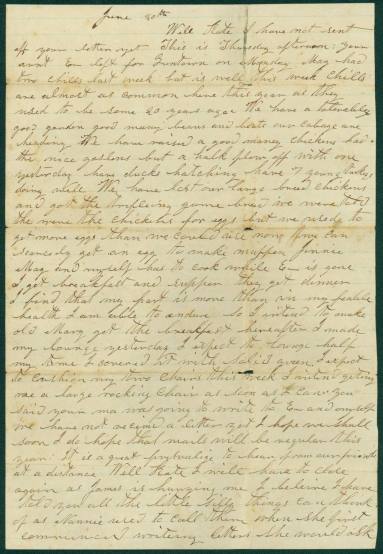 June 20th
Well Kate I have not sent
off your letter yet This is Thursday afternoon: Your
aunt Em left for on Monday May had
two chills last week but is well this week Chills
are almost as common here this year as they
used to be some 20 years ago We have a tolerably
good garden good many beans and beets our cabage are
heading We have raised a good many chickens had
the nice goslins but a halk flew off with one
yesterday have ducks hatching have 7 young turkeys
doing well We have lost our large breed chickens
and got the breed we were told
the were the chickens for eggs but we used to
get more eggs than we could use now you can
scarcely get an egg to make muffins Jennie
Mag and myself has to cook while Em is gone
I get breakfast and supper they get dinner
I find that my part is more than in my feable
health I am able to endure so I intend to make
old Mary get the breakfast hereafter I made
my lounge yesterday I expect to lounge half
my time I covered it with solid green I expect
to cushion my two chairs this week I intend geting
me a large rocking chair as soon as I can You
said your ma was going to write to Em and myself
we have not recieved a letter yet I hope we shall
soon I do hope that mails will be regular this
year: It is a great privalige to hear from our friends
at a distance Well Kate I will have to close
again as James is hurying me I believe I have
told you all the little things I can think
of as Nannie used to call them when she first
commenced writing letters she would ask